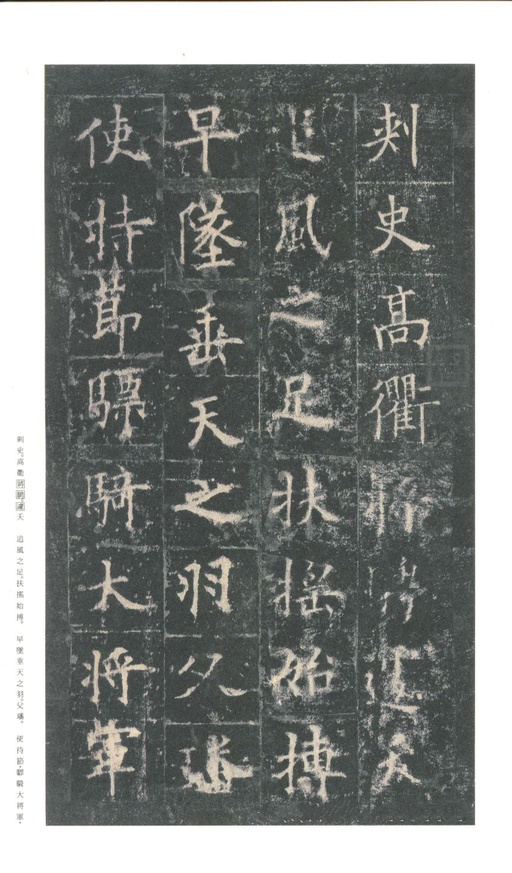 刺史高衢將騁遽天
追風之足扶搖始搏
早墜垂天之羽父璠
使持節驃騎大將軍
刺史。高衢將騁遽天 追風之足。扶搖始搏。 早墜垂天之羽。父璠。 使持節。驃騎大將軍。